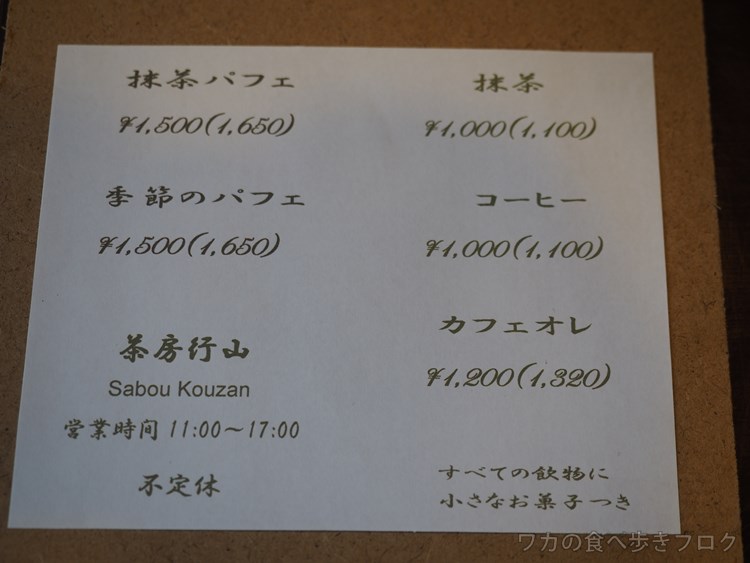 抹茶パフェ
¥1,500(1,650)
季節のパフェ
¥1,500(1,650)
茶房行山
Sabou Kouzan
営業時間 11:00～17:00
不定休
抹茶
¥1,000(1,100)
コーヒー
¥1,000(1,100)
カフェオレ
¥1,200(1,320)
すべての飲物に
小さなお菓子つき
ワカの食べ歩きブログ